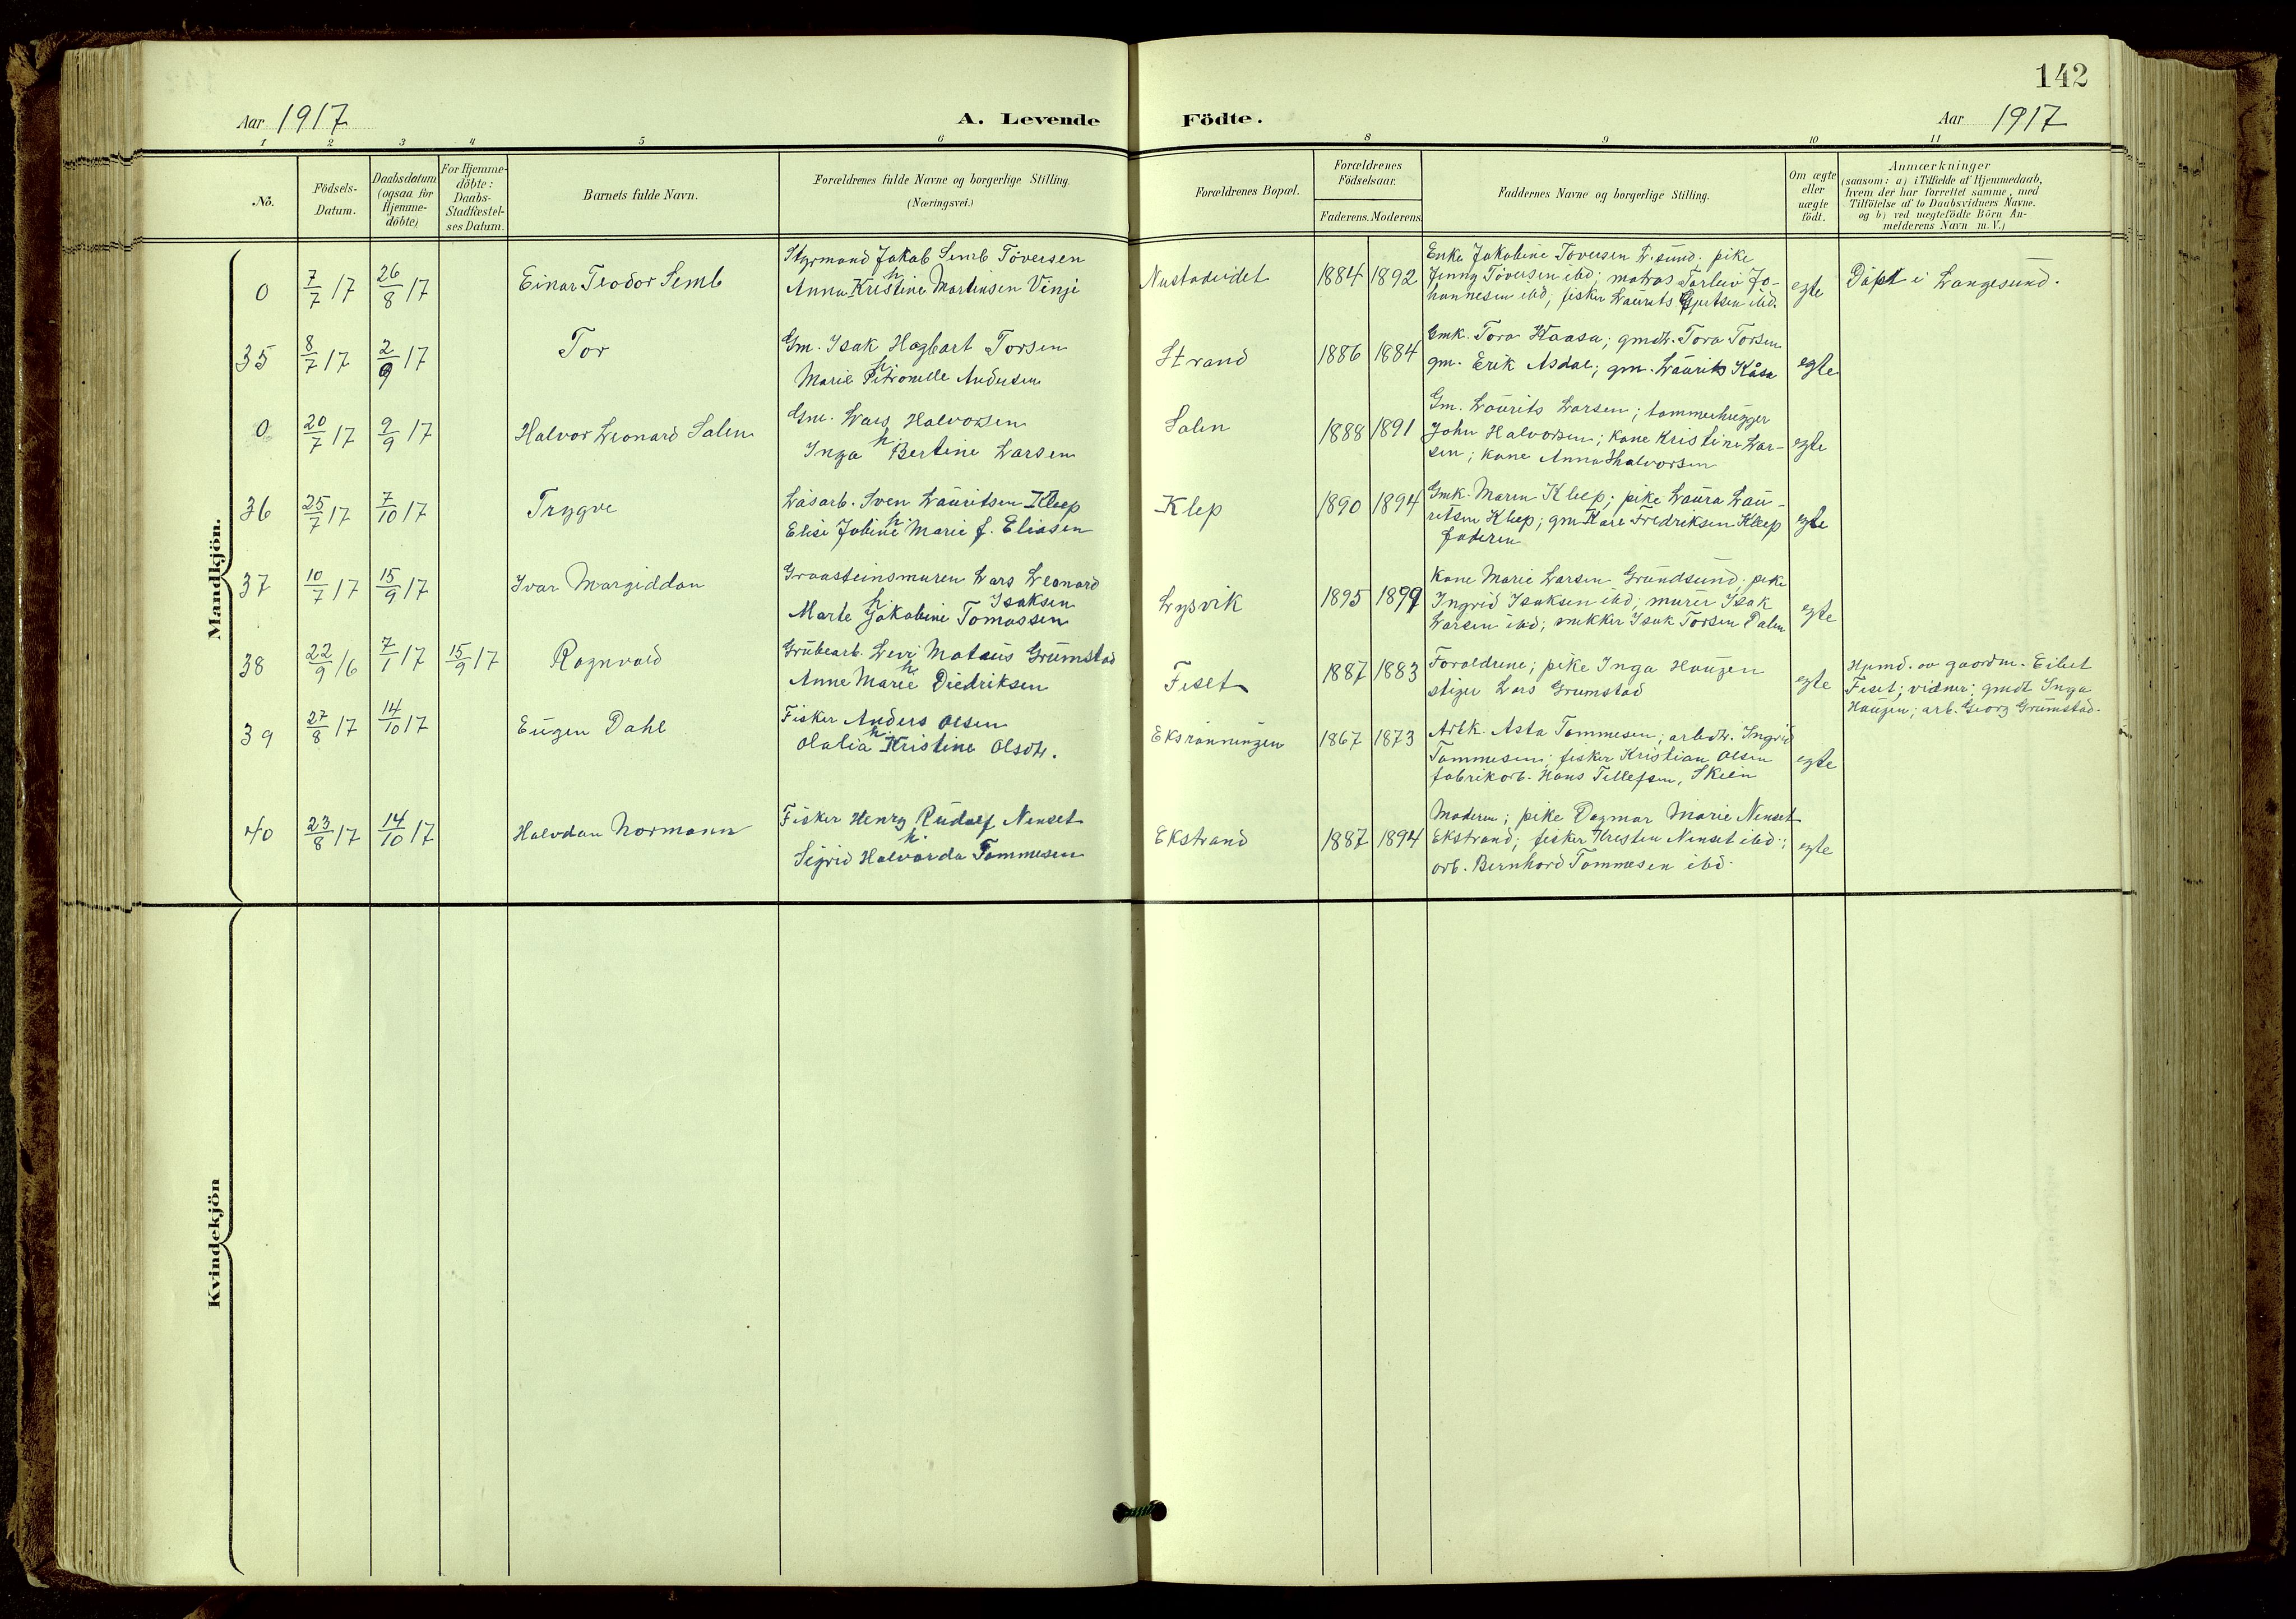 142
Aar 1917
A. Levende Födte.
Aar 1917
1 2 3 4 5 6 8 9 10 11
No.
Födsels-
Datum.
Daabsdatum
(ogsaa for
Hjemme-
döbte)
For Hjemme-
döbte:
Daabs-
Stadfæstel-
ses Datum.
Barnets fulde Navn.
Forældrenes fulde Navne og borgerlige Stilling.
(Næringsvei.)
Forældrenes Bopæl.
Forældrenes
Födselsaar.
Faderens. Moderens.
Faddernes Navne og borgerlige Stilling.
Om ægte
eller
uægte
födt.
Anmærkninger
(saasom: a) i Tilfælde af Hjemmedaab,
hvem der har forrettet samme, med
Tilföielse af to Daabsvidners Navne.
og b) ved uægtefödte Börn An-
melderens Navn m. V.)
Mandkjön.
0
7/7 17
26/8 17
Einar Teodor Semb
Styrmand Jakob Semb Töversen
h
Anna Kristine Martinsen Vinje
Nustadeidet
1884
1892
Enke Jakobine Töversen L.sund; pike
Jenny Töversen ibd; matros Torleiv Jo-
hannesen ibd; fisker Laurits Gjertsen ibd.
egte
Döpt i Langesund.
35
8/7 17
2/9 17
Tor
Gm. Isak Hagbart Torsen
h
Marie Petronelle Andersen
Strand
1886
1884
Gmk. Tora Kaasa; gmdtr. Tora Torsen
gm. Erik Asdal; gm. Laurits Kåsa
egte
0
20/7 17
9/9 17
Halvor Leonard Salen
Gm. Lars Halvorsen
h
Inga Bertine Larsen
Salen
1888
1891
Gm. Laurits Larsen; tømmerhugger
John Halvorsen; kone Kristine Lar-
sen; kone Anna Halvorsen
egte
36
25/7 17
7/10 17
Trygve
Løsarb. Sven Lauritsen Kleep
h
Elise Jobine Marie f. Eliasen
Klep
1890
1894
Gmk. Maren Kleep; pike Laura Lau-
ritsen Kleep; gm Kare Fredriksen Kleep
faderen
egte
37
10/7 17
15/9 17
Ivar Margiddan
Graasteinsmurer Lars Leonard
h Isaksen
Marte Jakobine Tomassen
Lysvik
1895
1899
Kone Marie Larsen Grundsund; pike
Ingrid Isaksen ibd; murer Isak
Larsen ibd; snekker Isak Torsen Dalen
egte
38
22/9 16
7/1 17
15/9 17
Ragnvald
Grubearb. Levi Mataus Grumstad
h
Anne Marie Diedriksen
Feset
1887
1883
Foraldrene; pike Inga Haugen
stiger Lars Grumstad
egte
Hjmd. av gaardm. Eilut
Feset; vidner: gmdt Inga
Haugen; arb. Georg Grumstad.
39
27/8 17
14/10 17
Eugen Dahl
Fisker Anders Olsen
h
Olalia Kristine Olsdtr.
Eksrønningen
1867
1873
Arbk. Asta Tommesen; arbdtr. Ingrid
Tommesen; fisker Kristian Olsen
fabrikarb. Hans Tellefsen, Skien
egte
40
23/8 17
14/10 17
Halvdan Normann
Fisker Henry Rudolf Nenset
h.
Sigrid Halvarda Tommesen
Ekstrand
1887
1894
Moderen; pike Dagmar Marie Nenset
Ekstrand; fisker Kresten Nenset ibd;
arb. Bernhard Tommesen ibd.
egte
Kvindekjön